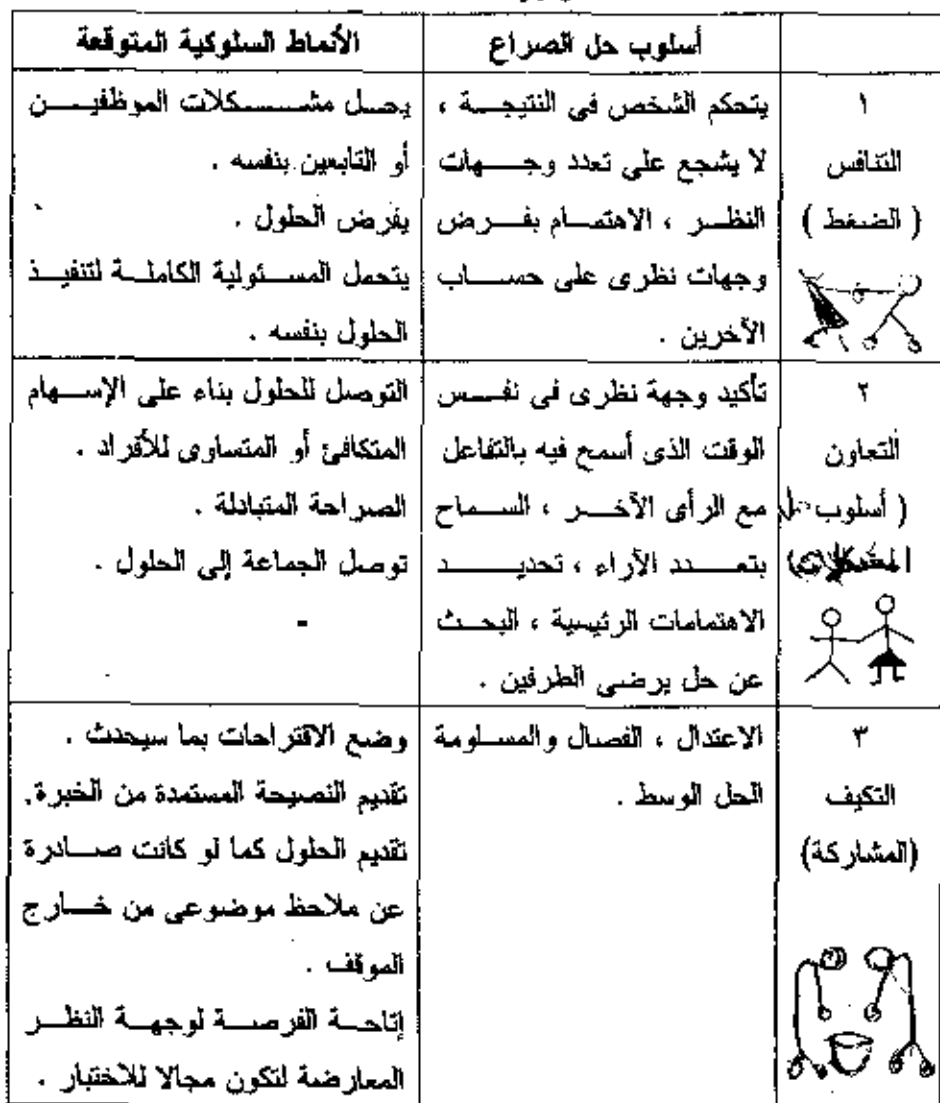 أسلوب حل الصراع
الأنماط السلوكية المتوقعة
١
التنافس
( الضغط )
يتحكم الشخص فى النتيجة ،
لا يشجع على تعدد وجهات
النظر ، الاهتمام بفرض
وجهات نظرى على حساب
الآخرين .
يحل مشكلات الموظفين
أو التابعين بنفسه .
يفرض الحلول .
يتحمل المسئولية الكاملة لتنفيذ
الحلول بنفسه .
٢
التعاون
( أسلوب حل
المشكلات)
تأكيد وجهة نظرى فى نفس
الوقت الذى أسمح فيه بالتفاعل
مع الرأى الآخر ، السماح
بتعدد الآراء ، تحديد
الاهتمامات الرئيسية ، البحث
عن حل يرضى الطرفين .
التوصل للحلول بناء على الإسهام
المتكافئ أو المتساوى للأفراد .
الصراحة المتبادلة .
توصل الجماعة إلى الحلول .
-
٣
التكيف
(المشاركة)
الاعتدال ، الفصال والمساومة
الحل الوسط .
وضع الاقتراحات بما سيحدث .
تقديم النصيحة المستمدة من الخبرة.
تقديم الحلول كما لو كانت صادرة
عن ملاحظ موضوعى من خارج
الموقف .
إتاحة الفرصة لوجهة النظر
المعارضة لتكون مجالا للاختبار .